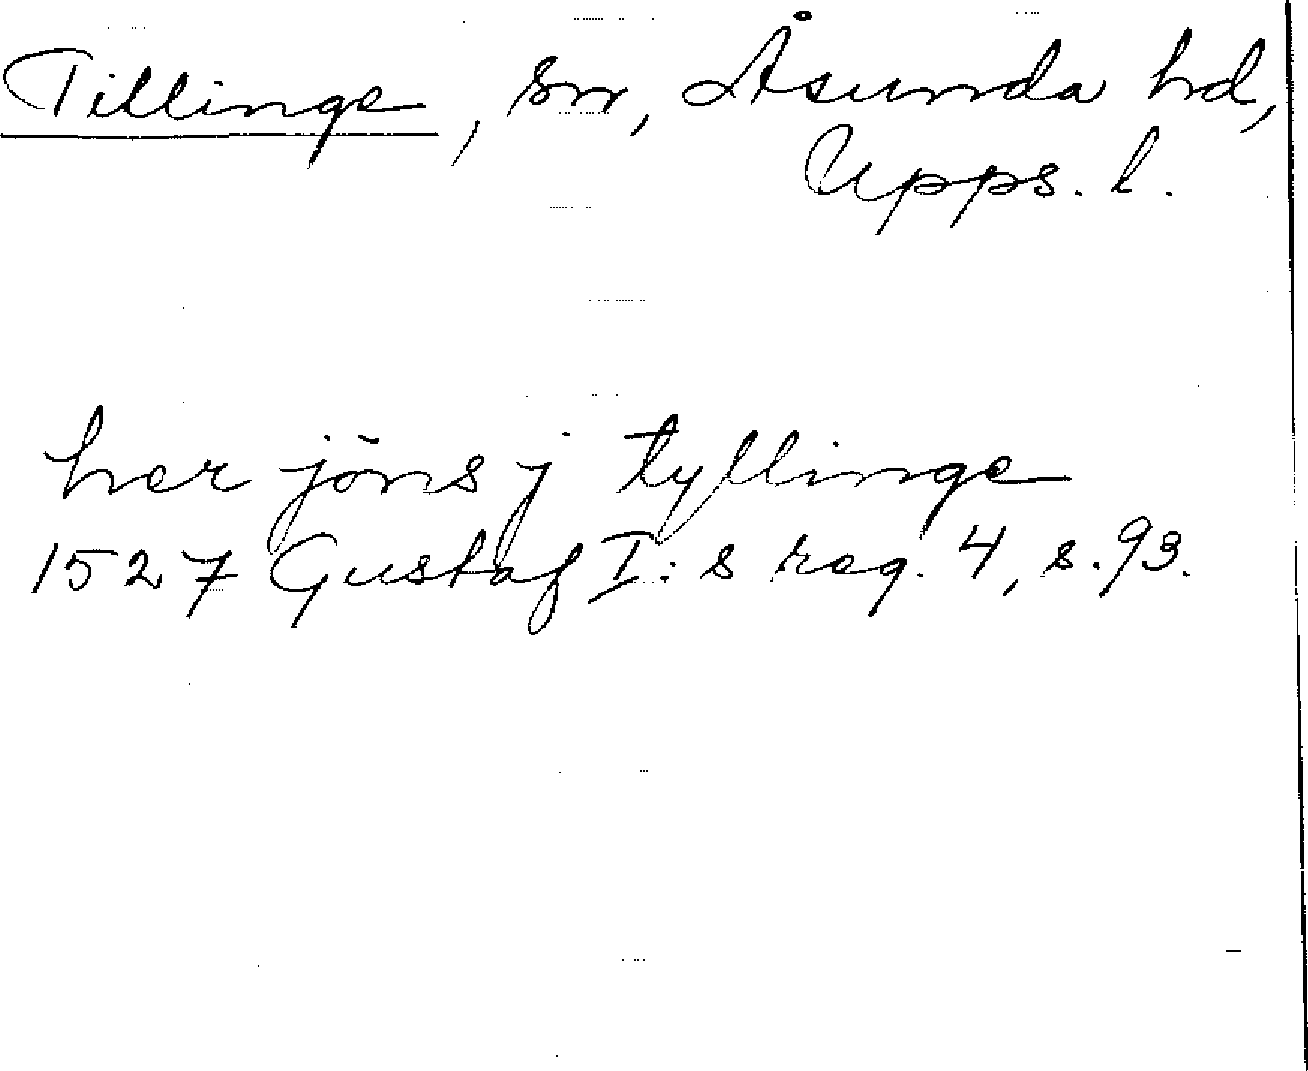 Tillinge, sn, Åsunda hd,
Upps. l.
her jöns j tyllinge
1527 Gustaf I:s reg. 4, s. 93.